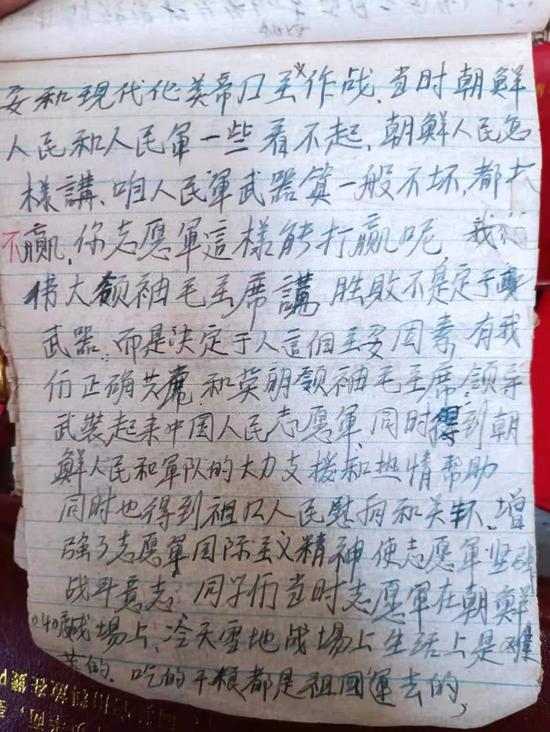 要和現代化美帝口主义作战,当时朝鮮
人民和人民軍一些看不起,朝鮮人民怎
樣講,咱人民軍武器算一般不坏,都打
不贏,你志愿軍這樣能打贏呢,我們
偉大領袖毛主席講 胜敗不是定于
武器 而是决定于人這個主要因素,有我
们正确 和英明領袖毛主席領导
武裝起来中国人民志愿軍,同时得到朝
鮮人民和軍队的大力支援和热情帮助
同时也得到祖口人民慰问和关怀、增
強了志愿軍国际主义精神使志愿軍坚强
战斗意志,同学们当时志愿軍在朝鮮
战場上,冷天雪地战場上生活上是艰
苦的,吃的干粮都是祖國運去的,